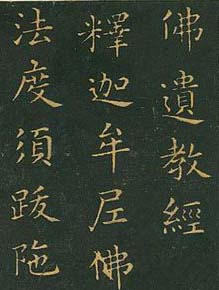 佛遺教經
釋迦牟尼佛
法度須跋陁